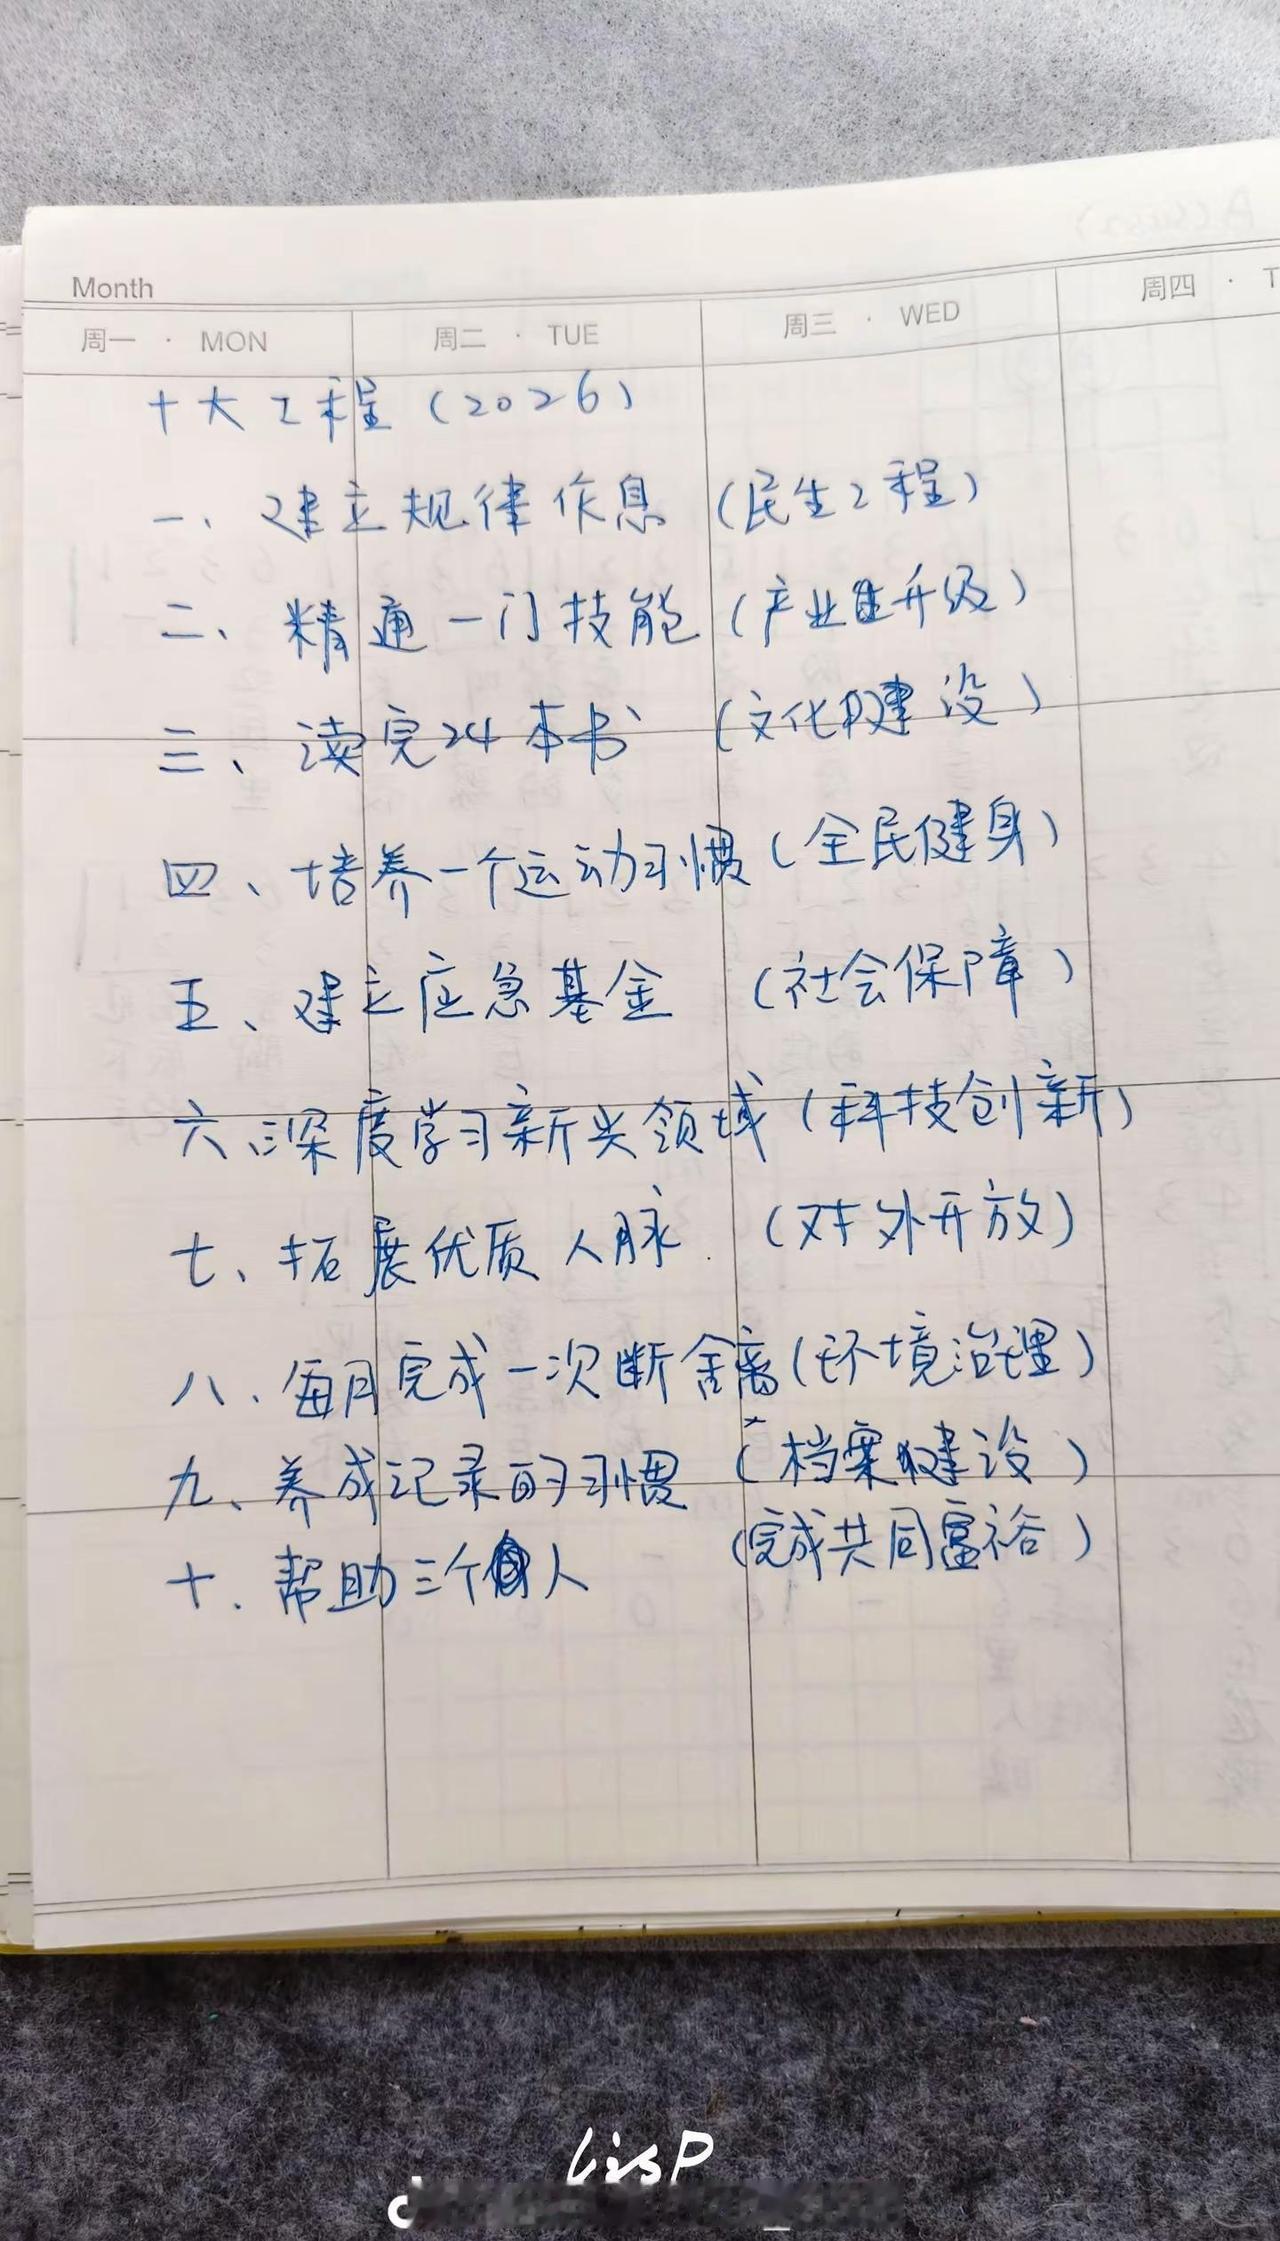 Month
周一 · MON 周二 · TUE 周三 · WED 周四 · T
十大工程（2026）
一、建立规律作息（民生工程）
二、精通一门技能（产业升级）
三、读完24本书（文化建设）
四、培养一个运动习惯（全民健身）
五、建立应急基金（社会保障）
六、深度学习新兴领域（科技创新）
七、拓展优质人脉（对外开放）
八、每月完成一次断舍离（环境治理）
九、养成记录的习惯（档案建设）
十、帮助三个人（完成共同富裕）
LisP